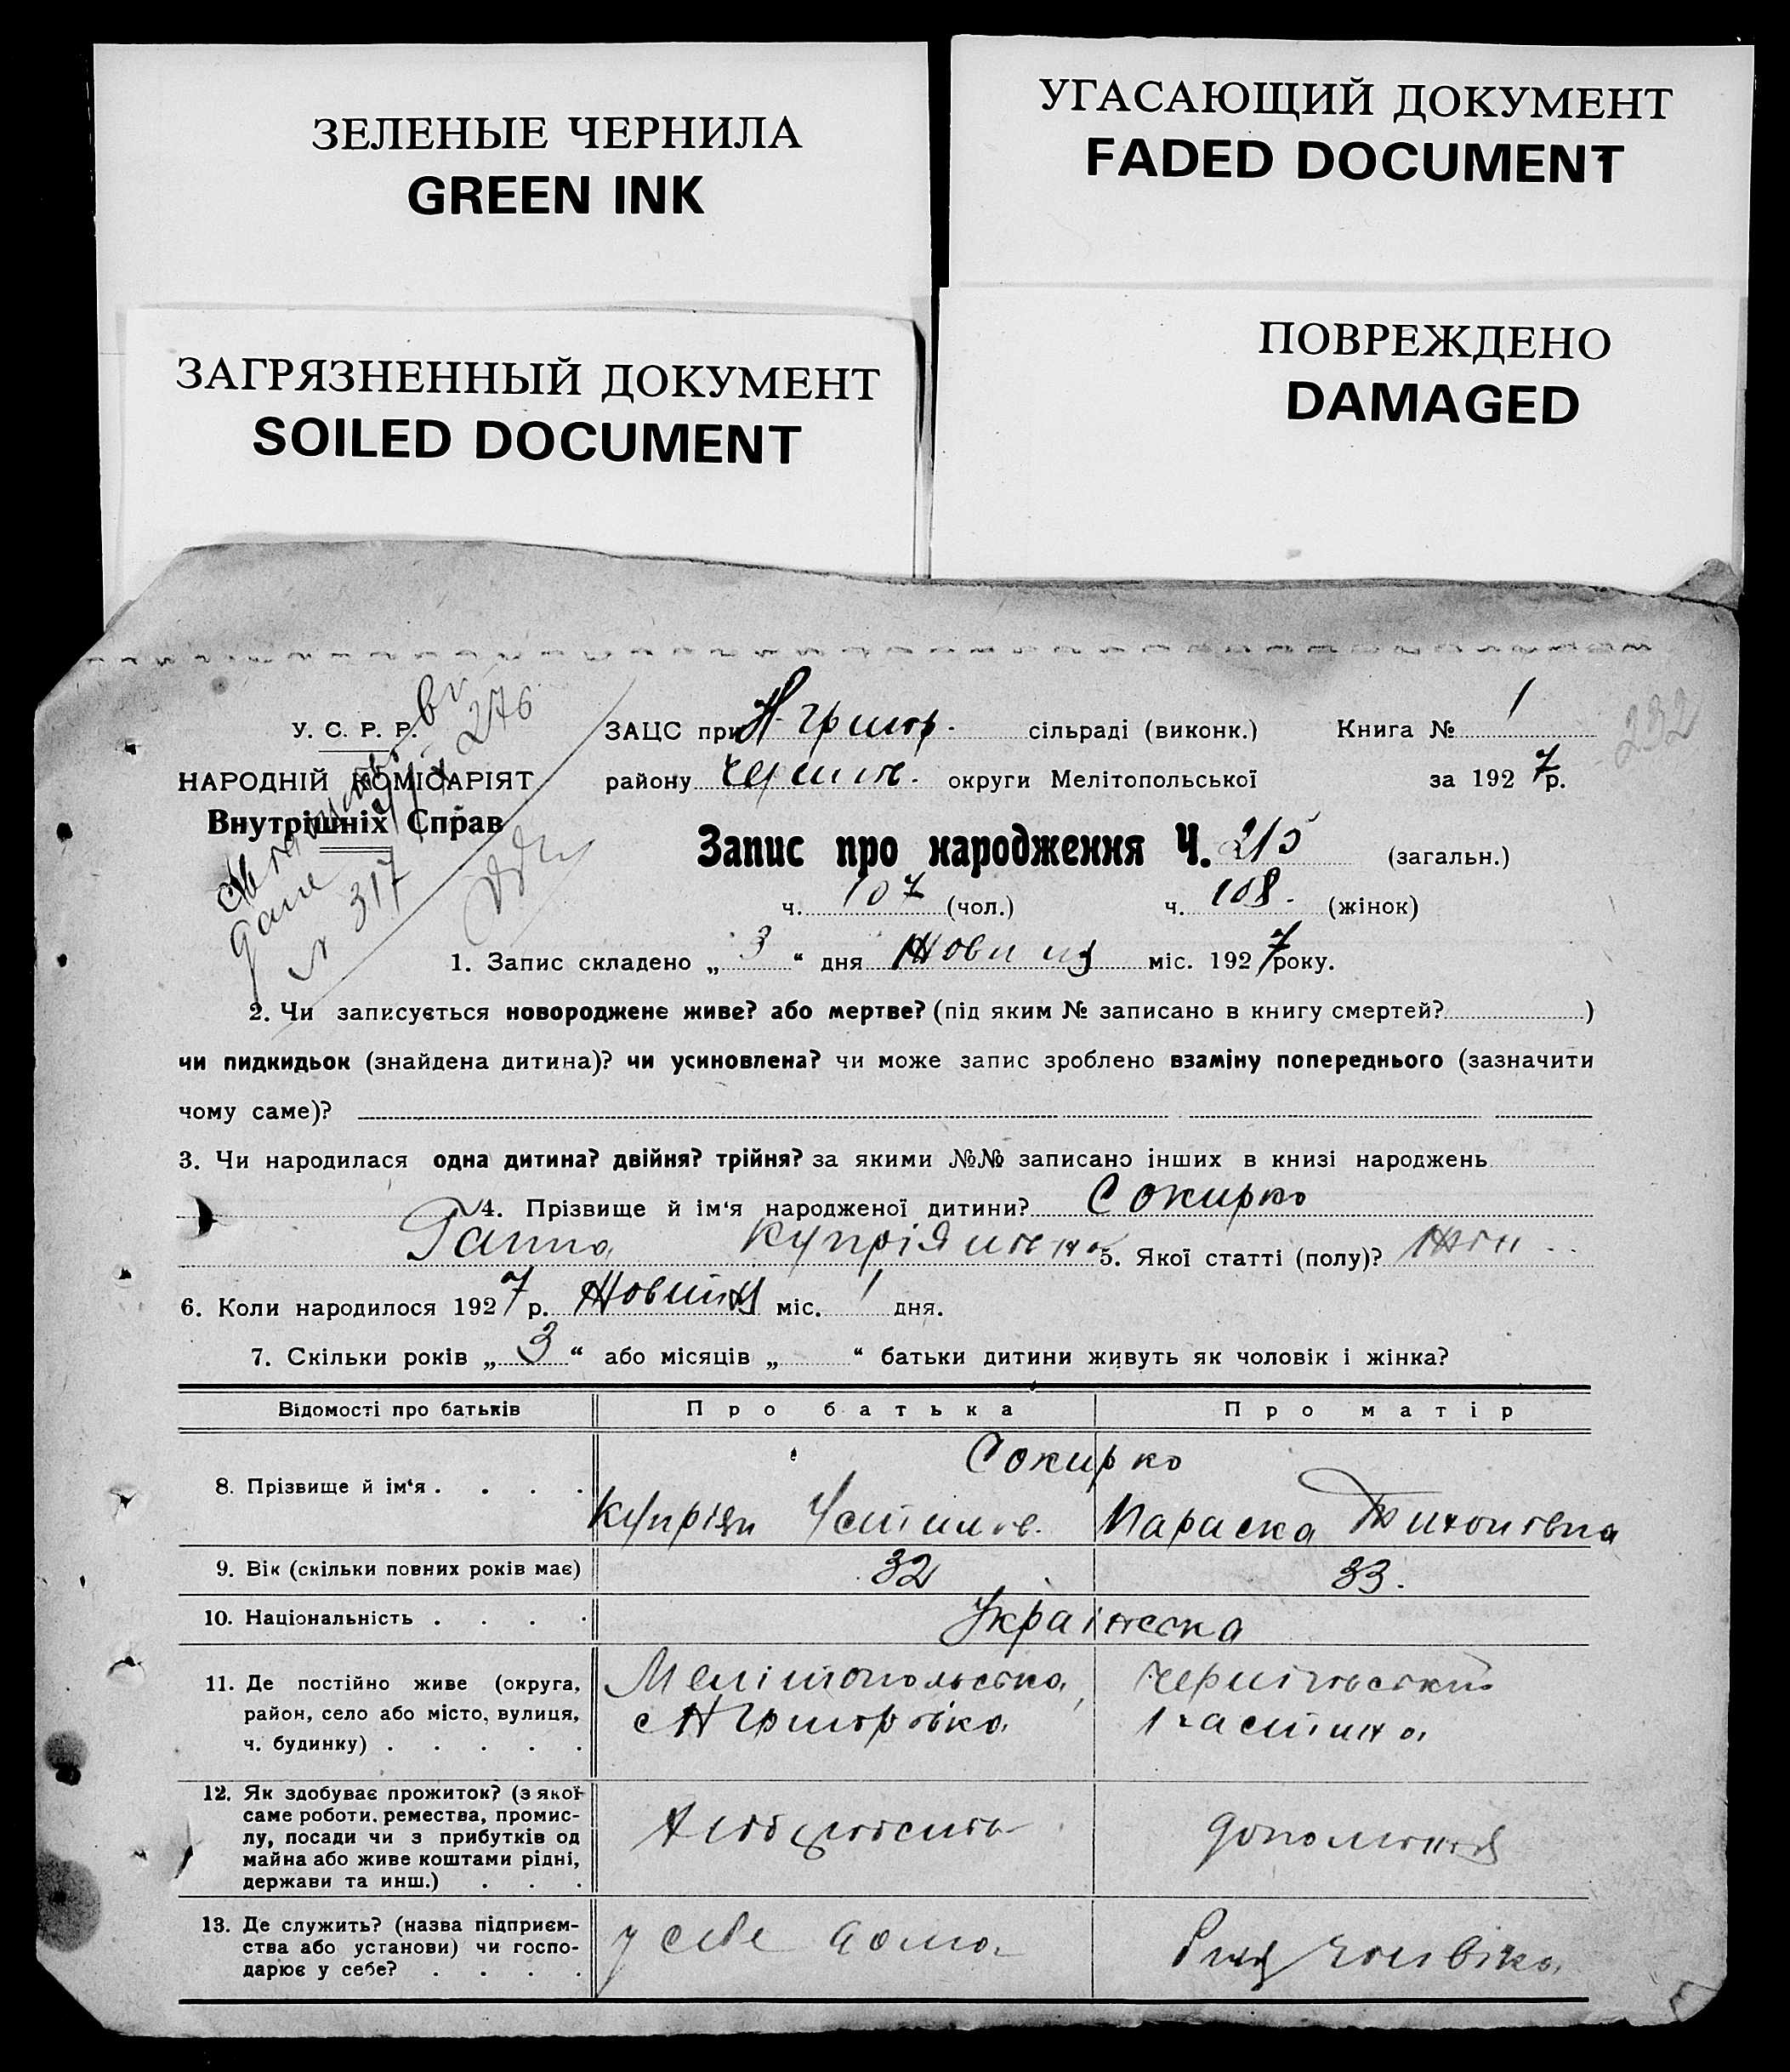 ЗЕЛЕНЫЕ ЧЕРНИЛА
GREEN INK
УГАСАЮЩИЙ ДОКУМЕНТ
FADED DOCUMENT
ЗАГРЯЗНЕННЫЙ ДОКУМЕНТ
SOILED DOCUMENT
ПОВРЕЖДЕНО
DAMAGED
232
У. С. Р. Р.
НАРОДНІЙ КОМІСАРІЯТ
Внутрішніх Справ
276
№ 317
ЗАЦС при Н-Григор. сільраді (виконк.) Книга № 1
району Черниг. округи Мелітопольської за 1927 р.
Запис про народження Ч. 215 (загальн.)
ч. 107 (чол.) ч. 108. (жінок)
1. Запис складено „ 3 “ дня Жовтня міс. 1927 року.
2. Чи записується новороджене живе? або мертве? (під яким № записано в книгу смертей? )
чи пидкидьок (знайдена дитина)? чи усиновлена? чи може запис зроблено взаміну попереднього (зазначити
чому саме)?
3. Чи народилася одна дитина? двійня? трійня? за якими №№ записано інших в книзі народжень
4. Прізвище й ім‘я народженої дитини? Сокирко
Ганна Купріяновна 5. Якої статті (полу)? Жін.
6. Коли народилося 1927 р. Жовтня міс. 1 дня.
7. Скільки років „ 3 “ або місяців „ “ батьки дитини живуть як чоловік і жінка?
Відомості про батьків Про батька Про матір
8. Прізвище й ім‘я . . . . Сокирко
Купріян Устимов. Параска Тихоновна
9. Вік (скільки повних років має) 32 33.
10. Національність . . . . Українська
11. Де постійно живе (округа, Мелітопольська, Чернігівський
район, село або місто, вулиця, с Н Григорівка
ч. будинку) . . . . .
12. Як здобуває прожиток? (з якої
саме роботи, ремества, промис-
лу, посади чи з прибутків од
майна або живе коштами рідні,
держави та инш.) . . .
Хлібороство допомога
13. Де служить? (назва підприєм-
ства або установи) чи госпо-
дарює у себе? . . . .
у себе дома чоловіка